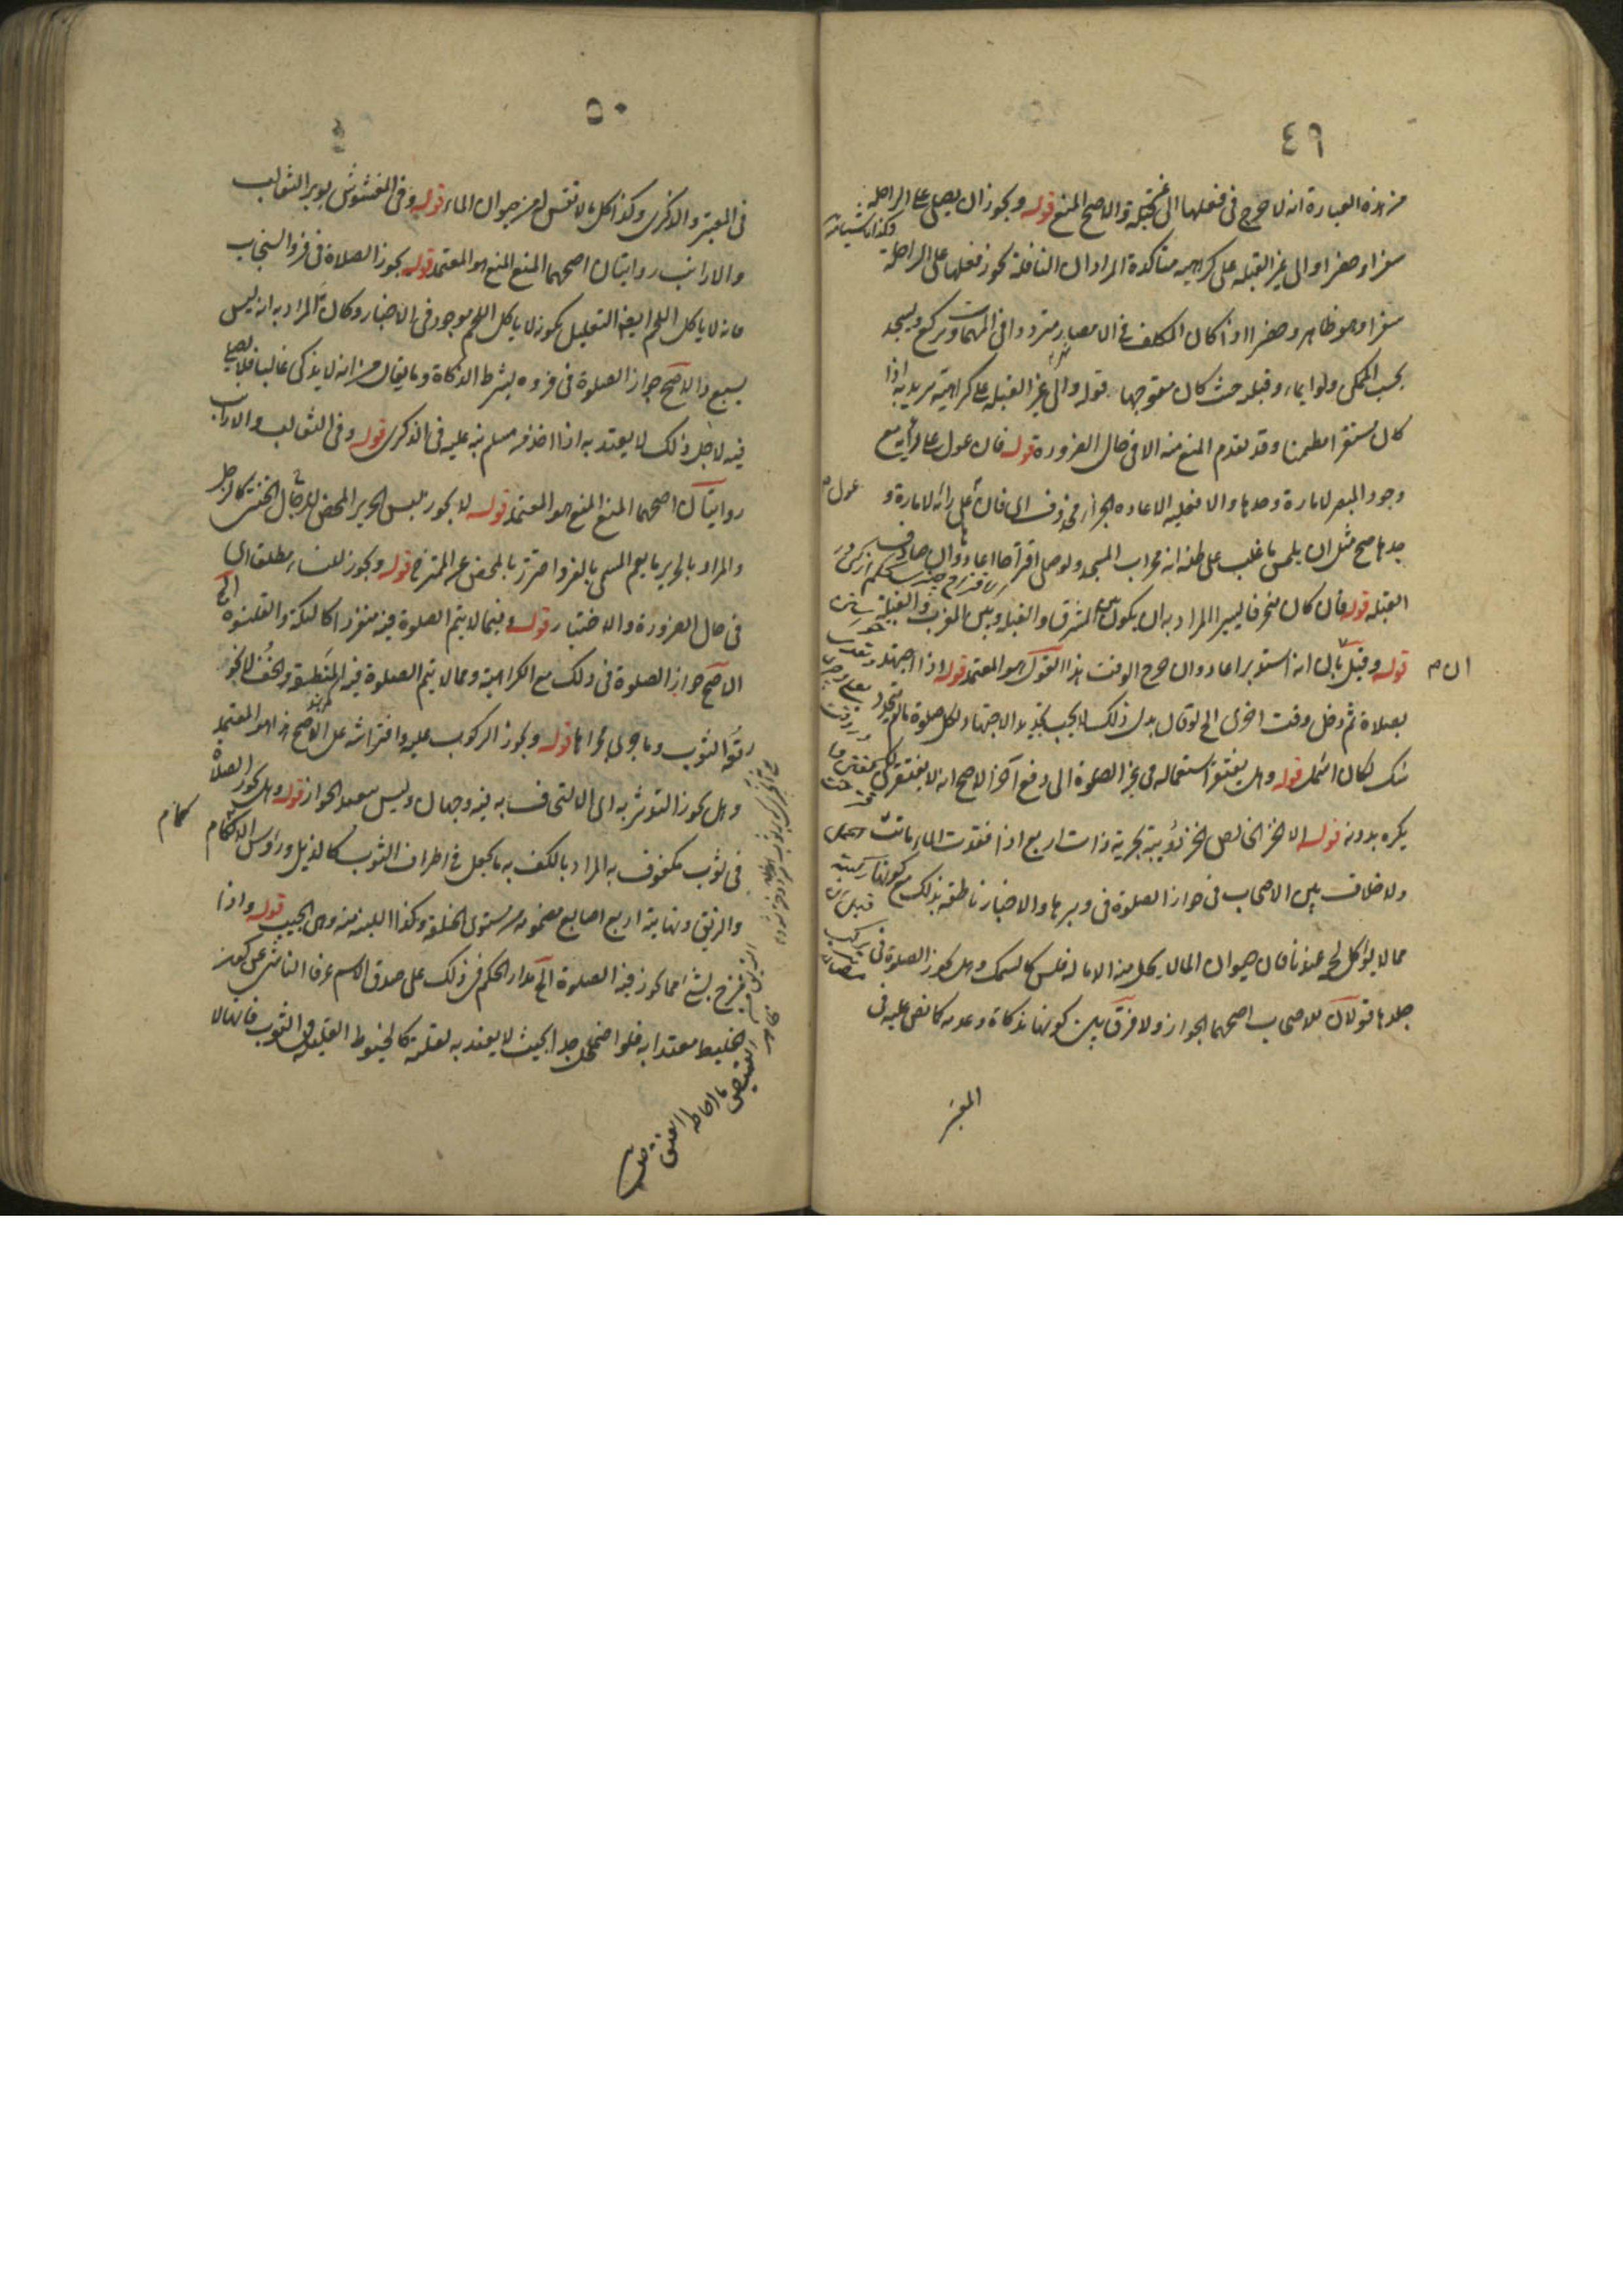 ٤٩
من هذه العبارة انه لا حرج في فعلها الى غير القبلة والاصح المنع قوله ويجوز ان يصلى على الراحلة
سفرا وحضرا والى غير القبله على كراهيه متاكدة المراد ان النافلة يجوز فعلها على الراحلة
سفرا وهو ظاهر وحضرا اذا كان المكلف في الامصار مترددا في المهمات ويركع ويسجد
بحسب الممكن ولو ايماء وقبلته حيث كان متوجها قوله والى غير القبله على كراهية يريد به اذا
كان مستقرا مطمئنا وقد تقدم المنع منه الا في حال الضرورة قوله فان عول على رأيه مع
وجود المبصر لامارة وجدها والا فعليه الاعاده الجزاء محذوف اى فان عول على رأيه لامارة
وجدها صح مثل ان يلمس ما غلب على ظنه انه محراب المسجد ولو صلى اقتراحا اعاد وان صادف
القبله قوله فان كان منحرفا يسيرا المراد به ان يكون بين المشرق والقبله وبين المغرب والقبلة
قوله وقيل ان بان انه استدبر اعاد وان خرج الوقت هذا القول هو المعتمد قوله اذا اجتهد
لصلاة ثم دخل وقت اخرى الخ لو قال بدل ذلك لا يجب تجديد الاجتهاد لكل صلوة ما لم يتجدد
شك لكان اشمل قوله وهل يفتقر استعماله في غير الصلوة الى دبغ آخر الاصح انه لا يفتقر لكن
يكره بدونه قوله الا الخز الخالص الخز دويبة بحرية ذات اربع اذا فقدت الماء ماتت
ولا خلاف بين الاصحاب في جواز الصلوة في وبرها والاخبار ناطقة بذلك مع كونها
مما لا يؤكل لحمه عندنا فان حيوان الماء لا يحل منه الا ما له فلس كالسمك وهل يجوز الصلوة في
جلدها قولان للاصحاب اصحهما الجواز ولا فرق بين كونها مذكاة وعدمه كما نص عليه في
المعتبر
٥٠
في المعتبر والذكرى وكذا كل ما لا نفس له من حيوان الماء قوله وفي المغشوش بوبر الثعالب
والارانب روايتان اصحهما المنع المنع هو المعتمد قوله يجوز الصلاة في فرو السنجاب
فانه لا ياكل اللحم ايضا التعليل بكونه لا ياكل اللحم موجود في الاخبار وكان المراد به انه ليس
بسبع والاصح جواز الصلوة في فروه بشرط الذكاة وما يقال من انه لا يذكى غالبا فلا يصلى
فيه لاجل ذلك لا يعتد به اذا اخذ من مسلم نبه عليه في الذكرى قوله وفي الثعالب والارانب
روايتان اصحهما المنع المنع هو المعتمد قوله لا يجوز لبس الحرير المحض للرجال الخنثى كالرجل
والمراد بالحرير ما يعم المسمى بالقز واحترز بالمحض عن الممتزج قوله ويجوز للنساء مطلقا اى
في حال الضرورة والاختيار قوله وفيما لا يتم الصلوة فيه منفردا كالتكة والقلنسوة الخ
الاصح جواز الصلوة في ذلك مع الكراهية ومما لا يتم الصلوة فيه المنطقة والخف
رقعة الثوب وما جرى مجراها قوله ويجوز الركوب عليه وافتراشه على الاصح هذا هو المعتمد
وهل يجوز التوثر به اى الالتحاف به فيه وجهان وليس ببعيد الجواز قوله وهل يجوز الصلاة
في ثوب مكفوف به المراد بالكف به ما يجعل في اطراف الثوب كالذيل ورؤس الاكمام
والزيق ونهايته اربع اصابع مضمومة من مستوى الخلقة وكذا اللبنة منه وهى الجيب قوله واذا
مزج بشئ مما يجوز فيه الصلوة الخ مدار الحكم في ذلك على صدق الاسم عرفا الناشئ عن كون
الخليط معتدا به فلو اضمحل جدا بحيث لا يعتد به لقلته كالخيوط القليلة في الثوب فانها لا